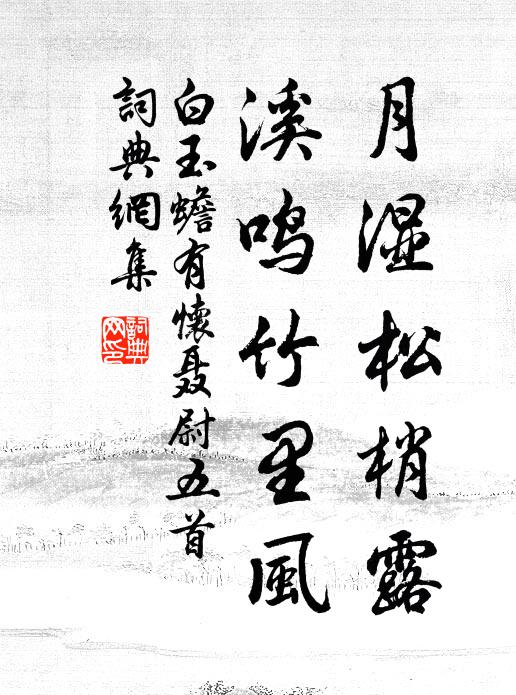 月湿松梢露
溪鸣竹里風
白玉蟾有懷聂尉五首
詞典網集
詞典
网印